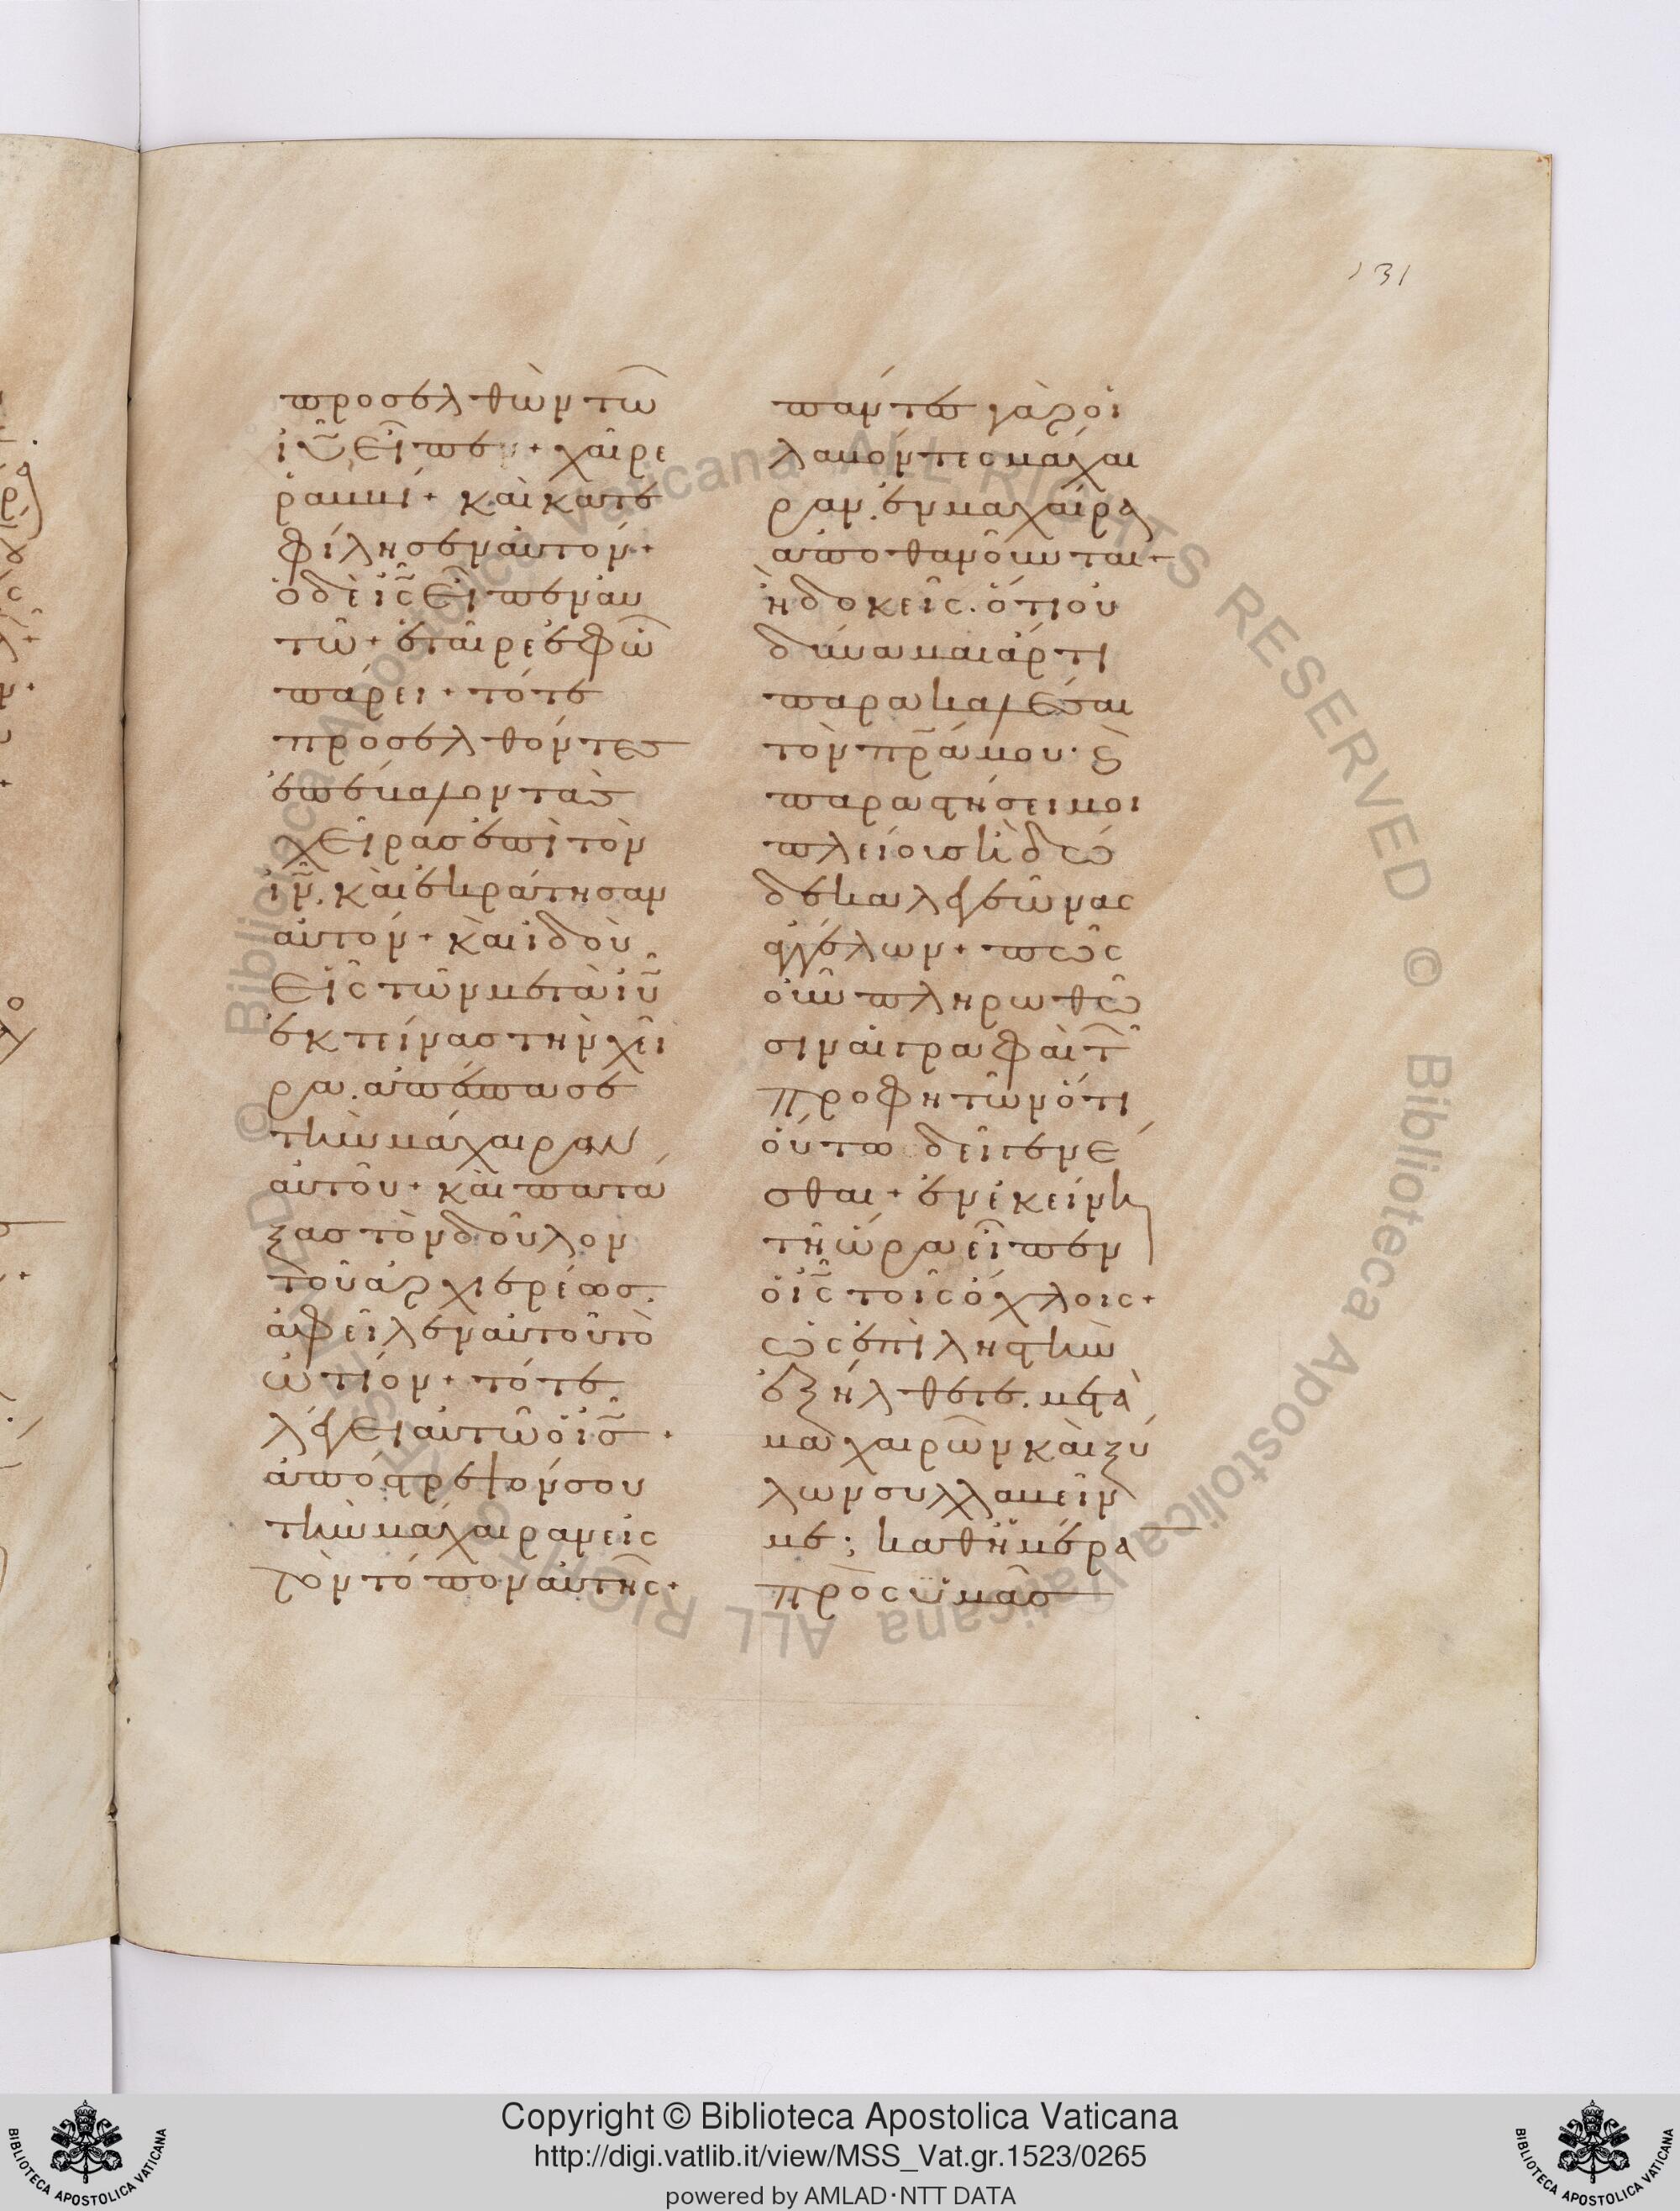 131
προσελθὼν τῶ
ἰῦ εἶπεν + χαῖρε
ῥαββί + καὶ κατε
φίλησεν αὐτόν +
ὁ δὲ ἰς εἶπεν αὐ
τῶ + ἑταῖρε ἐφ ᾧ
πάρει + τότε
προσελθόντες
ἐπέβαλον τὰς
χεῖρας ἐπὶ τὸν
ἰν. καὶ ἐκράτησαν
αὐτόν + καὶ ἰδοὺ
εἷς τῶν μετὰ ἰῦ
ἐκτείνας τὴν χεῖ
ρα. ἀπέσπασε
τὴν μάχαιραν
αὐτοῦ + καὶ πατά
ξας τὸν δοῦλον
τοῦ ἀρχιερέως.
ἀφεῖλεν αὐτοῦ τὸ
ὠτίον + τότε
λέγει αὐτῶ ὁ ἰς +
ἀπόστρεψόν σου
τὴν μάχαιραν εἰς
τὸν τόπον αὐτῆς +
πάντες γὰρ οἱ
λαβόντες μάχαι
ραν. ἐν μαχαίρα
ἀποθανοῦνται +
ἢ δοκεῖς. ὅτι οὐ
δύναμαι ἄρτι
παρακαλέσαι
τὸν πρα μου. καὶ
παραστήσει μοι
πλείους ἢ δώ
δεκα λεγεῶνας
ἀγγέλων + πῶς
οὖν πληρωθῶ
σιν αἱ γραφαὶ τῶν
προφητῶν ὅτι
οὕτω δεῖ γενέ
σθαι + ἐν ἐκείνη
τῆ ὥρα εἶπεν
ὁ ἰς τοῖς ὄχλοις +
ὡς ἐπὶ ληστὴν
ἐξήλθετε. μετὰ
μαχαιρῶν καὶ ξύ
λων συλλαβεῖν
με; καθ ἡμέραν
πρὸς ὑμᾶς
Copyright © Biblioteca Apostolica Vaticana
http://digi.vatlib.it/view/MSS_Vat.gr.1523/0265
powered by AMLAD·NTT DATA
BIBLIOTECA APOSTOLICA VATICANA
BIBLIOTECA APOSTOLICA VATICANA